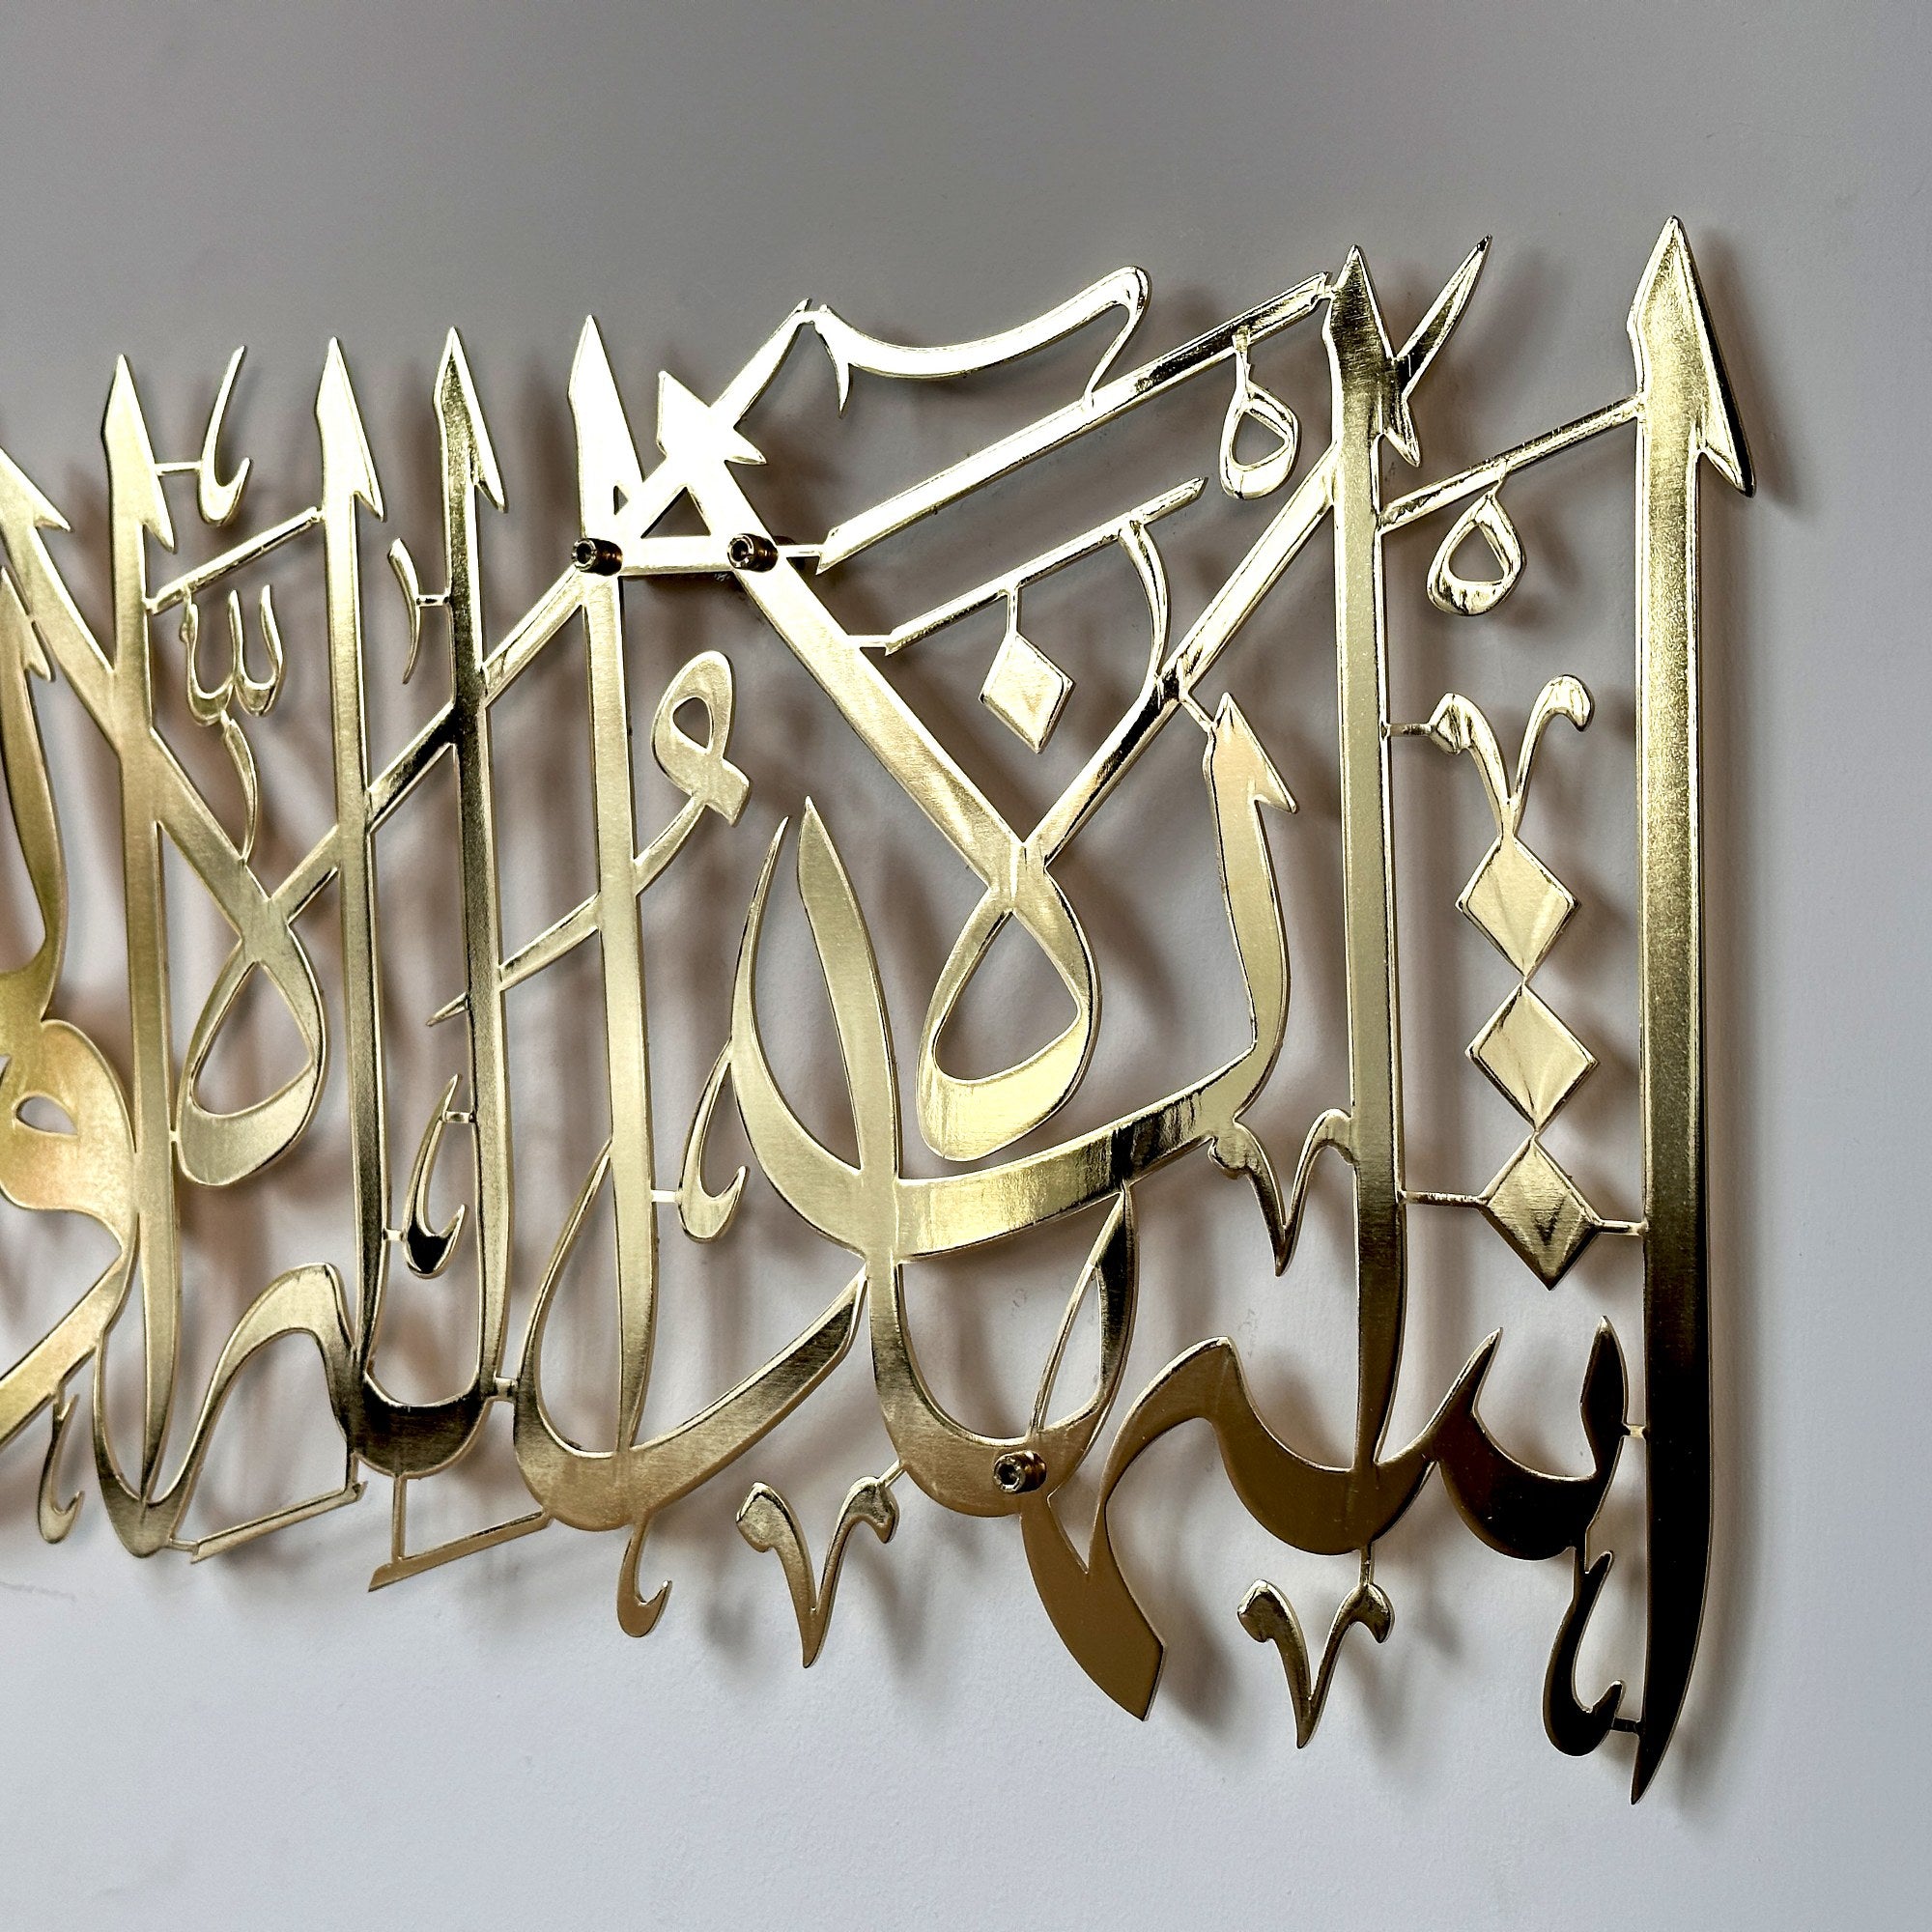 أَشْهَدُ أَنْ لَا إِلَهَ إِلَّا اللَّهُ